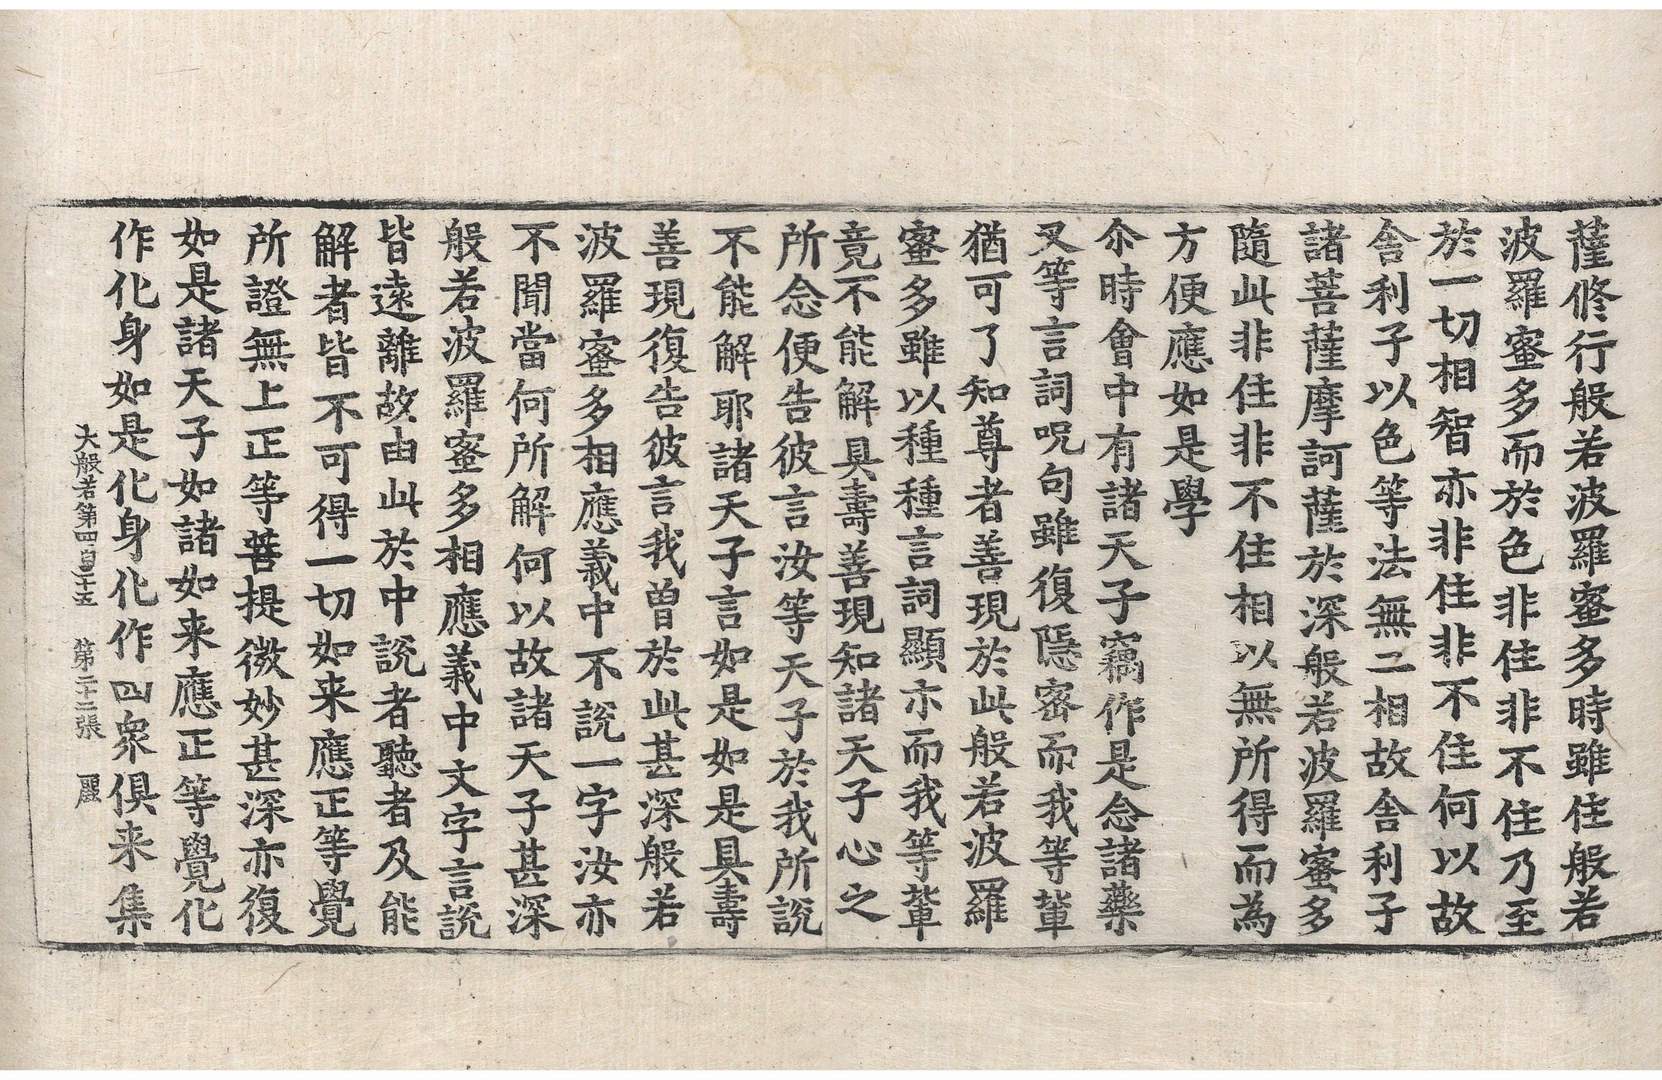 薩修行般若波羅蜜多時雖住般若
波羅蜜多而於色非住非不住乃至
於一切相智亦非住非不住何以故
舍利子以色等法無二相故舍利子
諸菩薩摩訶薩於深般若波羅蜜多
隨此非住非不住相以無所得而為
方便應如是學
尒時會中有諸天子竊作是念諸藥
叉等言詞呪句雖復隱密而我等輩
猶可了知尊者善現於此般若波羅
蜜多雖以種種言詞顯示而我等輩
竟不能解具壽善現知諸天子心之
所念便告彼言汝等天子於我所說
不能解耶諸天子言如是如是具壽
善現復告彼言我曽於此甚深般若
波羅蜜多相應義中不說一字汝亦
不聞當何所解何以故諸天子甚深
般若波羅蜜多相應義中文字言說
皆遠離故由此於中說者聽者及能
解者皆不可得一切如来應正等覺
所證無上正等菩提微妙甚深亦復
如是諸天子如諸如来應正等覺化
作化身如是化身化作四衆俱来集
大般若第四百二十五 第二十二張 麗